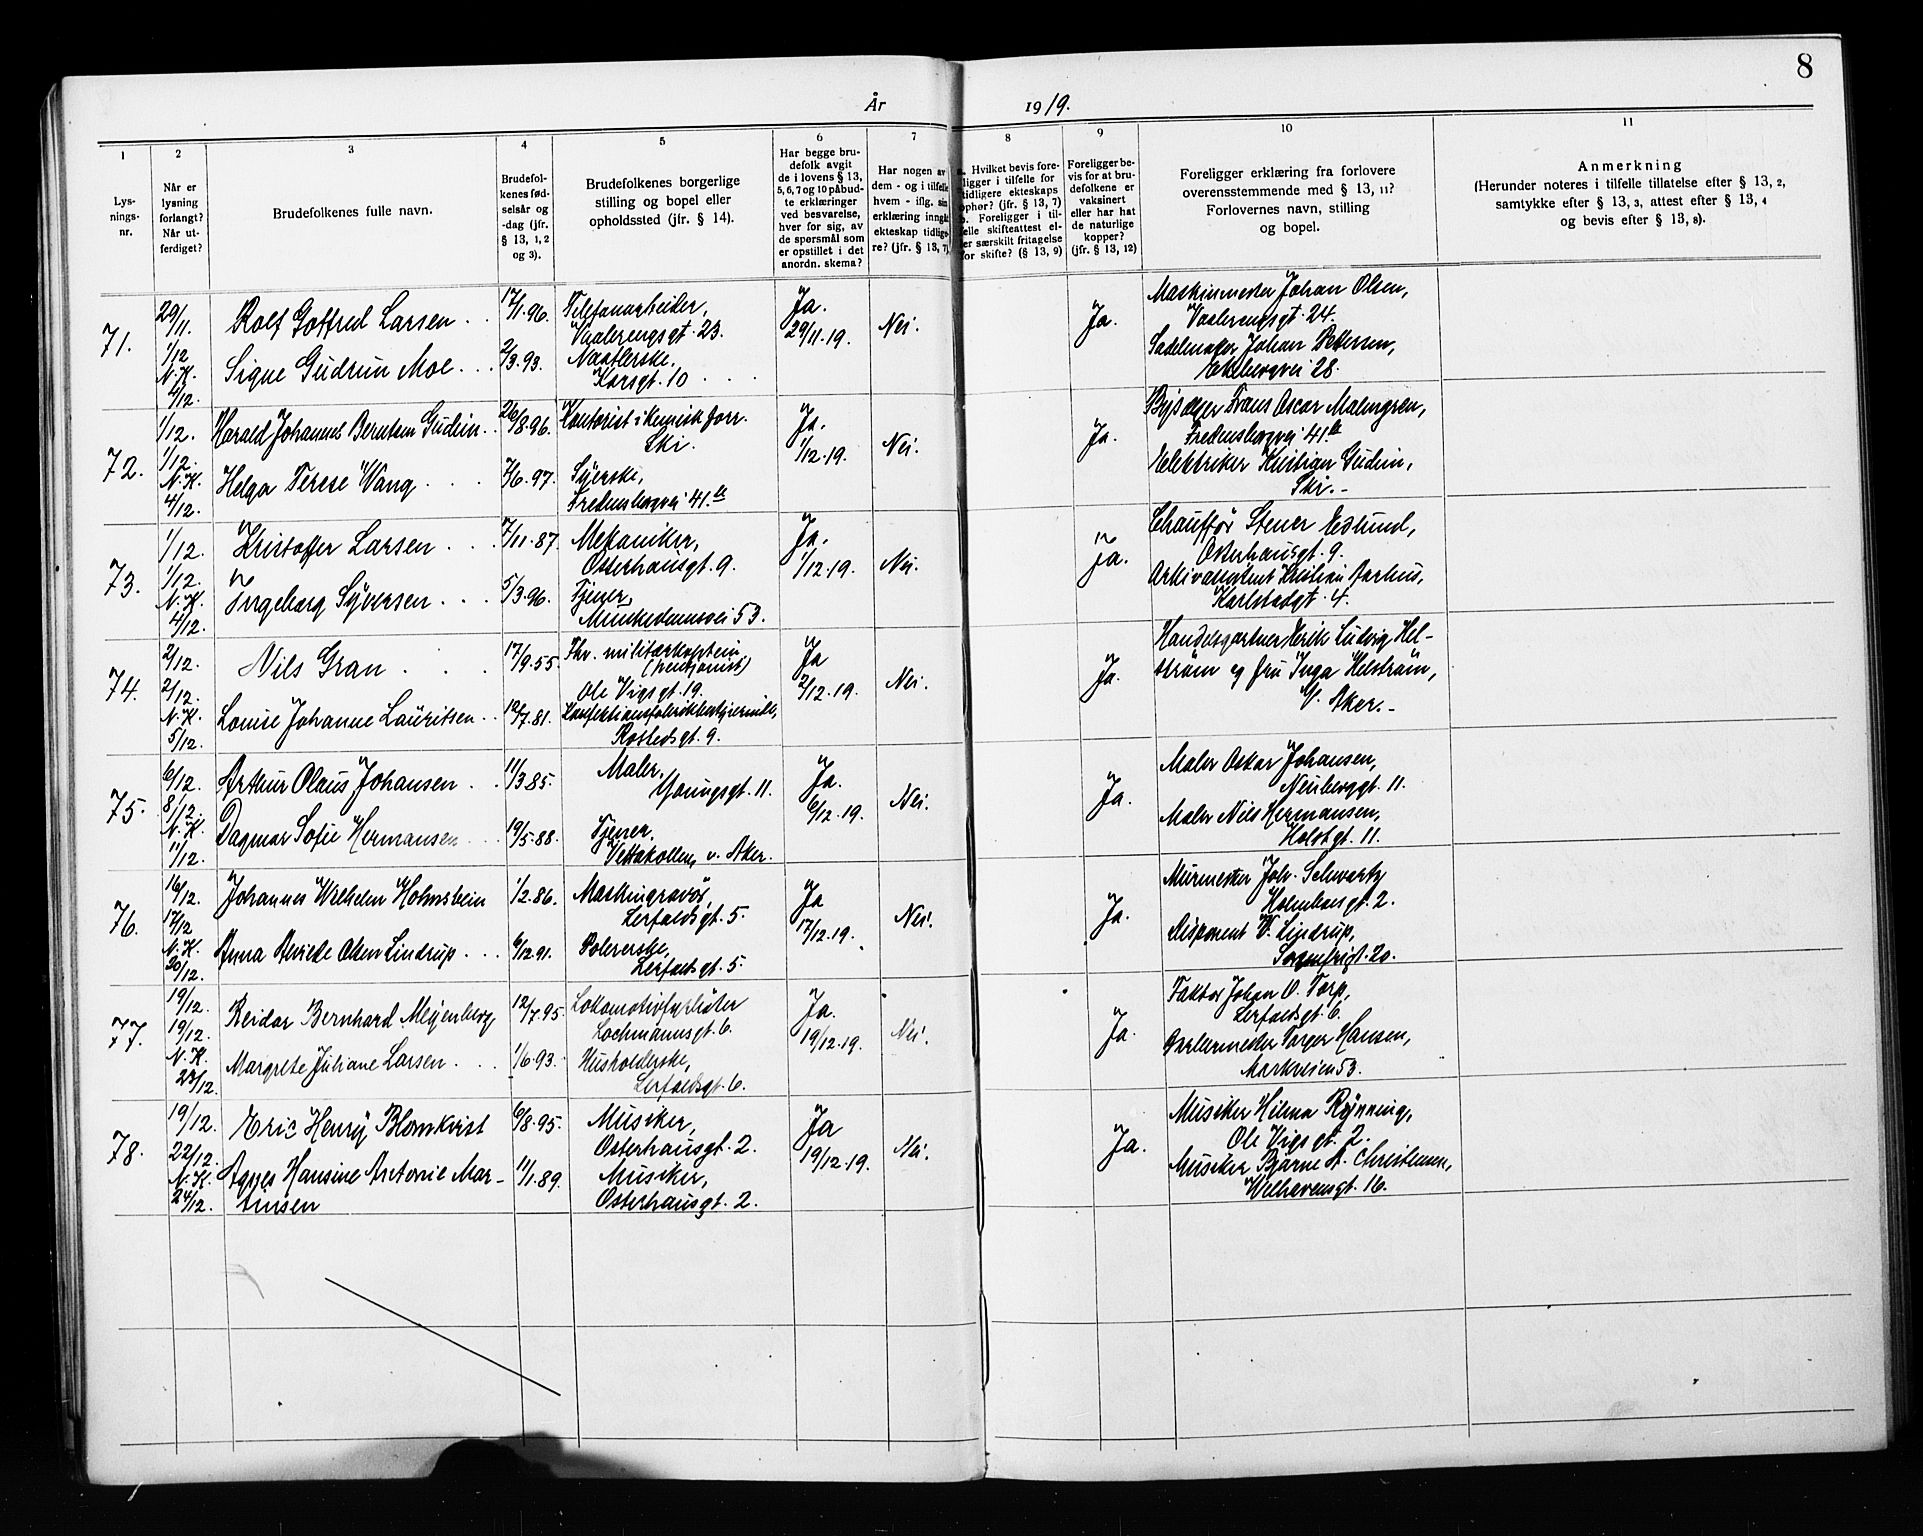 8
År 1919.
1 2 3 4 5 6 7 8 9 10 11
Lys-
nings-
nr.
Når er
lysning
forlangt?
Når ut-
ferdiget?
Brudefolkenes fulle navn.
Brudefol-
kenes fød-
selsår og
-dag (jfr.
§ 13, 1, 2
og 3).
Brudefolkenes borgerlige
stilling og bopel eller
opholdssted (jfr. § 14).
Har begge bru-
defolk avgit
de i lovens § 13,
5, 6, 7 og 10 påbud-
te erklæringer
ved besvarelse,
hver for sig, av
de spørsmål som
er opstillet i det
anordn. skema?
Har nogen av
dem - og i tilfelle
hvem - iflg. sin
erklæring inngåt
ekteskap tidlige-
re? (jfr. § 13, 7)
a. Hvilket bevis fore-
ligger i tilfelle for
tidligere ekteskaps
ophør? (jfr. § 13, 7)
b. Foreligger i til-
felle skifteattest el-
ler særskilt fritagelse
for skifte? (§ 13, 9)
Foreligger be-
vis for at bru-
defolkene er
vaksinert
eller har hat
de naturlige
kopper?
(jfr. § 13, 12)
Foreligger erklæring fra forlovere
overensstemmende med § 13, 11?
Forlovernes navn, stilling
og bopel.
Anmerkning
(Herunder noteres i tilfelle tillatelse efter § 13, 2,
samtykke efter § 13, 3, attest efter § 13, 4
og bevis efter § 13, 8).
71.
29/11.
1/12
N.K.
4/12.
Rolf Gotfred Larsen . .
Signe Gudrun Moe . . .
17/1.96.
2/3.93.
Telefonarbeider,
Vaalerengsgt. 23.
Naatlerske,
Korsgt. 10 . . .
Ja.
29/11.19.
Nei.
Ja.
Maskinmester Johan Olsen,
Vaalerengsgt. 24.
Sadelmager Johan Pettersen,
Ekebergvei 28.
72.
1/12.
1/12.
N.K.
4/12.
Harald Johannes Berntsen Gudim . .
Helga Terese Wang . . .
26/8.96.
7/6.97.
Kontorist i kemisk forr.
Ski.
Syerske,
Fredensborgvei 41.b
Ja.
1/12.19.
Nei.
Ja.
Frans Oscar Malmgren,
Fredensborgvei 41b
Elektriker Kristian Gudim,
Ski.-
73.
1/12.
1/12.
N.K.
4/12.
Kristoffer Larsen . . .
Ingeborg Syversen . . .
7/11.87.
5/3.96.
Mekaniker,
Osterhausgt. 9.
Tjener,
Munkedamsvei 53.
Ja.
1/12.19.
Nei.
Ja.
Chauffør Stener Edlund,
Osterhausgt. 9.
Arkivassistent Kristian Aarhus,
Karlstadgt. 4.
74.
2/12.
2/12.
N.K.
5/12.
Nils Gran . . .
Louise Johanne Lauritsen . .
17/9.55.
12/7.81.
Fhv. militærkaptein
(pensjonist)
Ole Vigsgt. 19.
Konfektionsfabrikbestyrerinde,
Rostedsgt. 9.
Ja
2/12.19.
Nei.
Ja.
Handelsgartner Erik Ludvig Hel-
ström og fru Inga Helström,
V. Aker.-
75.
6/12.
8/12.
N.K.
11/12.
Arthur Olaus Johansen . .
Dagmar Sofie Hermansen . . .
11/3.85.
19/5.88.
Maler,
Youngsgt. 11.
Tjener,
Vettakollen, v. Aker.
Ja.
6/12.19.
Nei.
Ja.
Maler Oskar Johansen,
Neuberggt. 11.
Maler Nils Hermansen,
Holstgt. 11.
76.
16/12.
17/12
N.K.
20/12.
Johannes Wilhelm Holmstein
Anna Olsen Lindrup . . .
1/2.86.
6/12.91.
Maskingravør,
Lerfaldsgt. 5.
Polererske,
Lerfaldsgt. 5.
Ja
17/12.19.
Nei.
Ja.
Murmester Joh. Schwartz
Holmboesgt. 2.
Disponent W. Lindrup,
Sorgenfrigt. 20.
77.
19/12.
19/12.
N.K.
23/12.
Reidar Bernhard Meyenberg
Margrete Juliane Larsen . . .
12/7.95.
1/6.93.
Lokomotivfyrbøter
Lochmannsgt. 6.
Husholderske,
Lerfaldsgt. 6.
Ja.
19/12.19.
Nei.
Ja.
Faktor Johan O. Torp,
Lerfaldsgt. 6.
Torger Hansen,
Markveien 53.
78.
19/12.
22/12.
N.K.
24/12.
Eric Henry Blomkvist
Agnes Hansine Antonie Mar-
tinsen
6/8.95.
11/1.89.
Musiker,
Osterhausgt. 2.
Musiker,
Osterhausgt. 2.
Ja
19/12.19.
Nei.
Ja.
Musiker Hilma Rynning,
Ole Vigsgt. 2.
Musiker Bjarne A. Christensen,
Welhavensgt. 16.